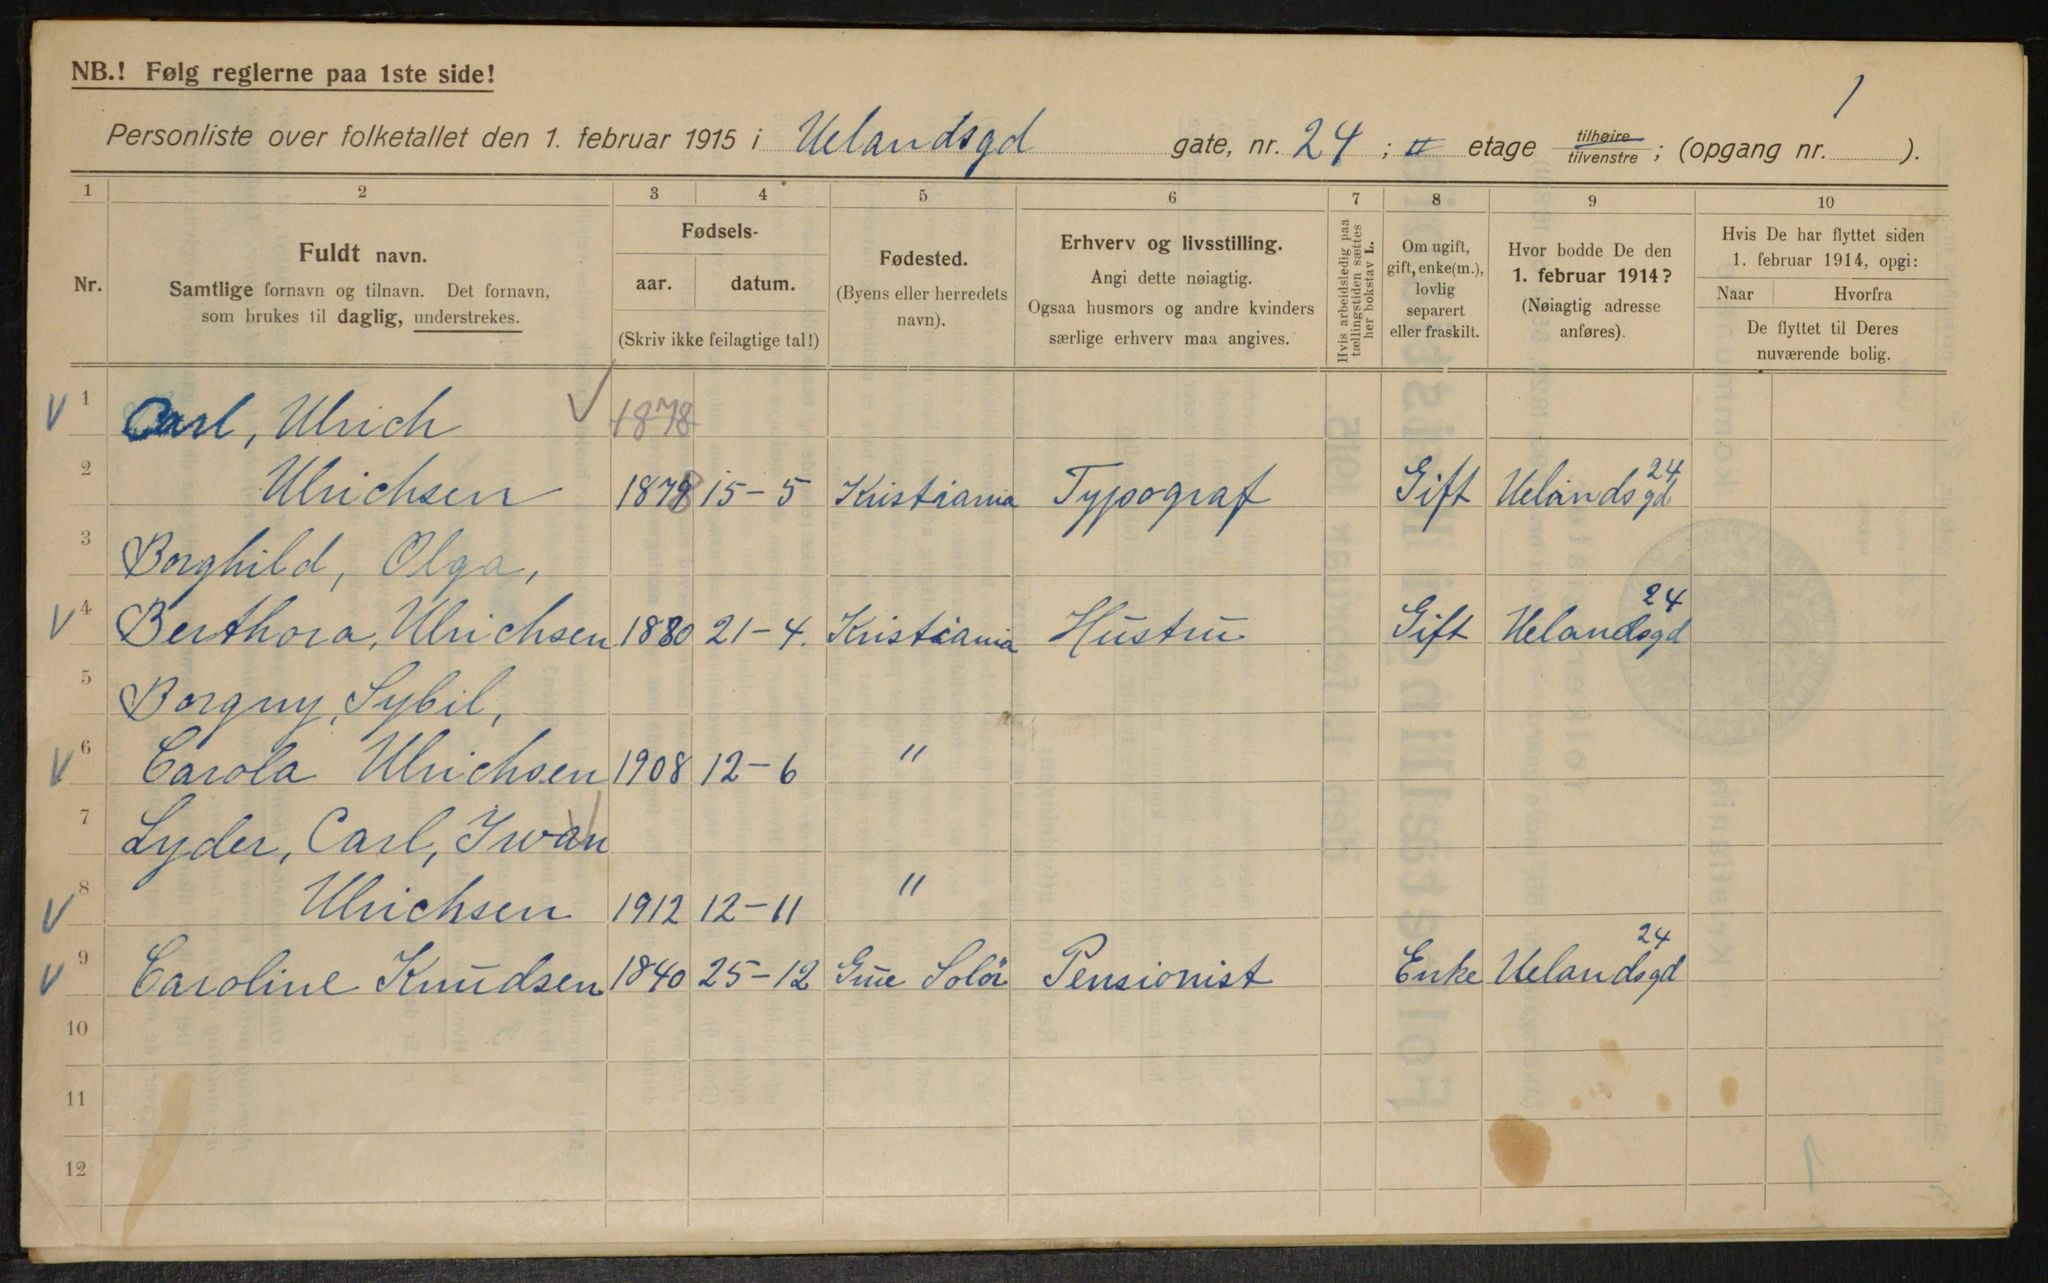 NB.! Følg reglerne paa 1ste side!
1
Personliste over folketallet den 1. februar 1915 i Uelandsgd gate, nr. 24 ; II etage tilhøire / tilvenstre ; (opgang nr. ).
1 2 3 4 5 6 7 8 9 10
Nr.
Fuldt navn.
Samtlige fornavn og tilnavn. Det fornavn,
som brukes til daglig, understrekes.
Fødsels-
aar. datum.
(Skriv ikke feilagtige tal!)
Fødested.
(Byens eller herredets
navn).
Erhverv og livsstilling.
Angi dette nøiagtig.
Ogsaa husmors og andre kvinders
særlige erhverv maa angives.
Hvis arbeidsledig paa
tællingstiden sættes
her bokstav L.
Om ugift,
gift, enke(m.),
lovlig
separert
eller fraskilt.
Hvor bodde De den
1. februar 1914?
(Nøiagtig adresse
anføres).
Hvis De har flyttet siden
1. februar 1914, opgi:
Naar Hvorfra
De flyttet til Deres
nuværende bolig.
1 Carl, Ulrich 1878
2 Ulrichsen 1878 15-5 Kristiania Typograf Gift Uelandsgd 24
3 Borghild, Olga,
4 Berthora, Ulrichsen 1880 21-4. Kristiania Hustru Gift Uelandsgd 24
5 Borgny, Sybil,
6 Carola Ulrichsen 1908 12-6 "
7 Lyder, Carl, Iwan
8 Ulrichsen 1912 12-11 "
9 Caroline Knudsen 1840 25-12 Grue Solör Pensionist Enke Uelandsgd 24
10
11
12